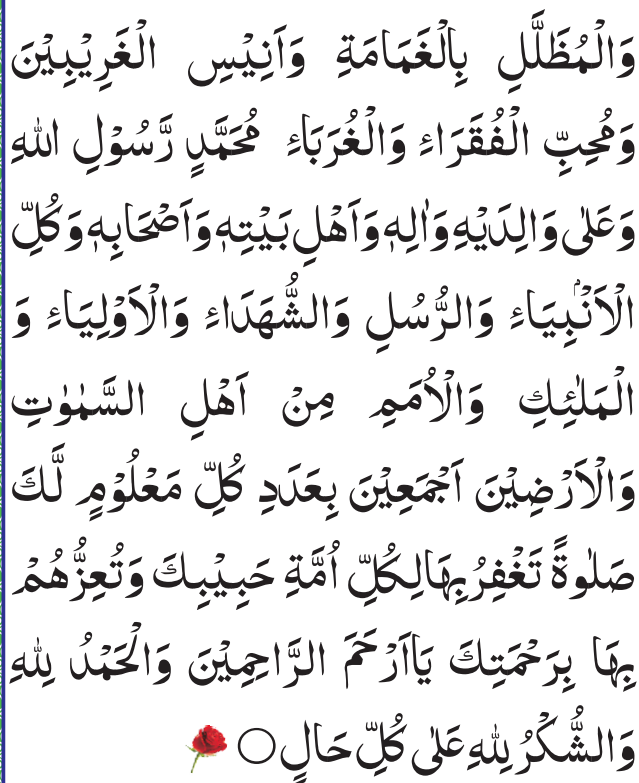 وَالْمُظَلَّلِ بِالْغَمَامَةِ وَاَنِيْسِ الْغَرِيْبِيْنَ
وَمُحِبِّ الْفُقَرَاءِ وَالْغُرَبَاءِ مُحَمَّدٍ رَّسُوْلِ اللهِ
وَعَلٰى وَالِدَيْهِ وَاٰلِهٖ وَاَهْلِ بَيْتِهٖ وَاَصْحَابِهٖ وَكُلِّ
الْاَنْۢبِيَاءِ وَالرُّسُلِ وَالشُّهَدَاءِ وَالْاَوْلِيَاءِ وَ
الْمَلٰئِكِ وَالْاُمَمِ مِنْ اَهْلِ السَّمٰوٰتِ
وَالْاَرْضِيْنَ اَجْمَعِيْنَ بِعَدَدِ كُلِّ مَعْلُوْمٍ لَّكَ
صَلٰوةً تَغْفِرُ بِهَا لِكُلِّ اُمَّةِ حَبِيْبِكَ وَتُعِزُّهُمْ
بِهَا بِرَحْمَتِكَ يَااَرْحَمَ الرَّاحِمِيْنَ وَالْحَمْدُ لِلّٰهِ
وَالشُّكْرُ لِلّٰهِ عَلٰى كُلِّ حَالٍ ○